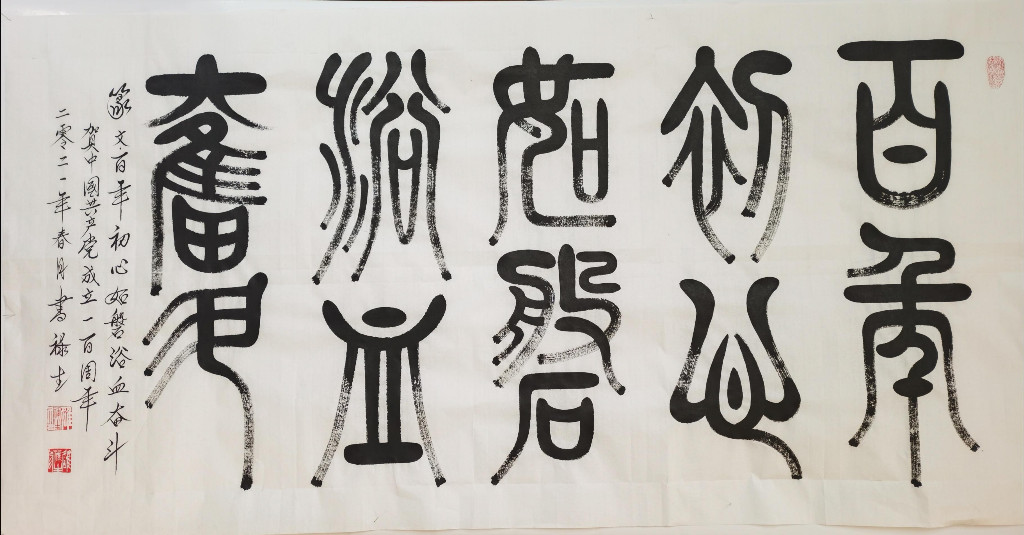 百年
初心
如磐
浴血
奮鬥
篆文百年初心如磐浴血奋斗
贺中國共产党成立一百周年
二零二一年春月書禄生